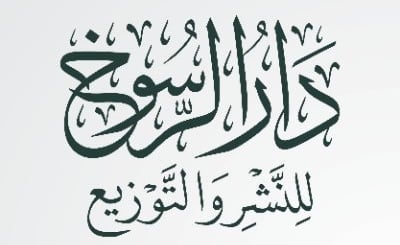 دَارُ الرُّسُوخ
لِلنَّشْرِ وَالتَّوْزِيع